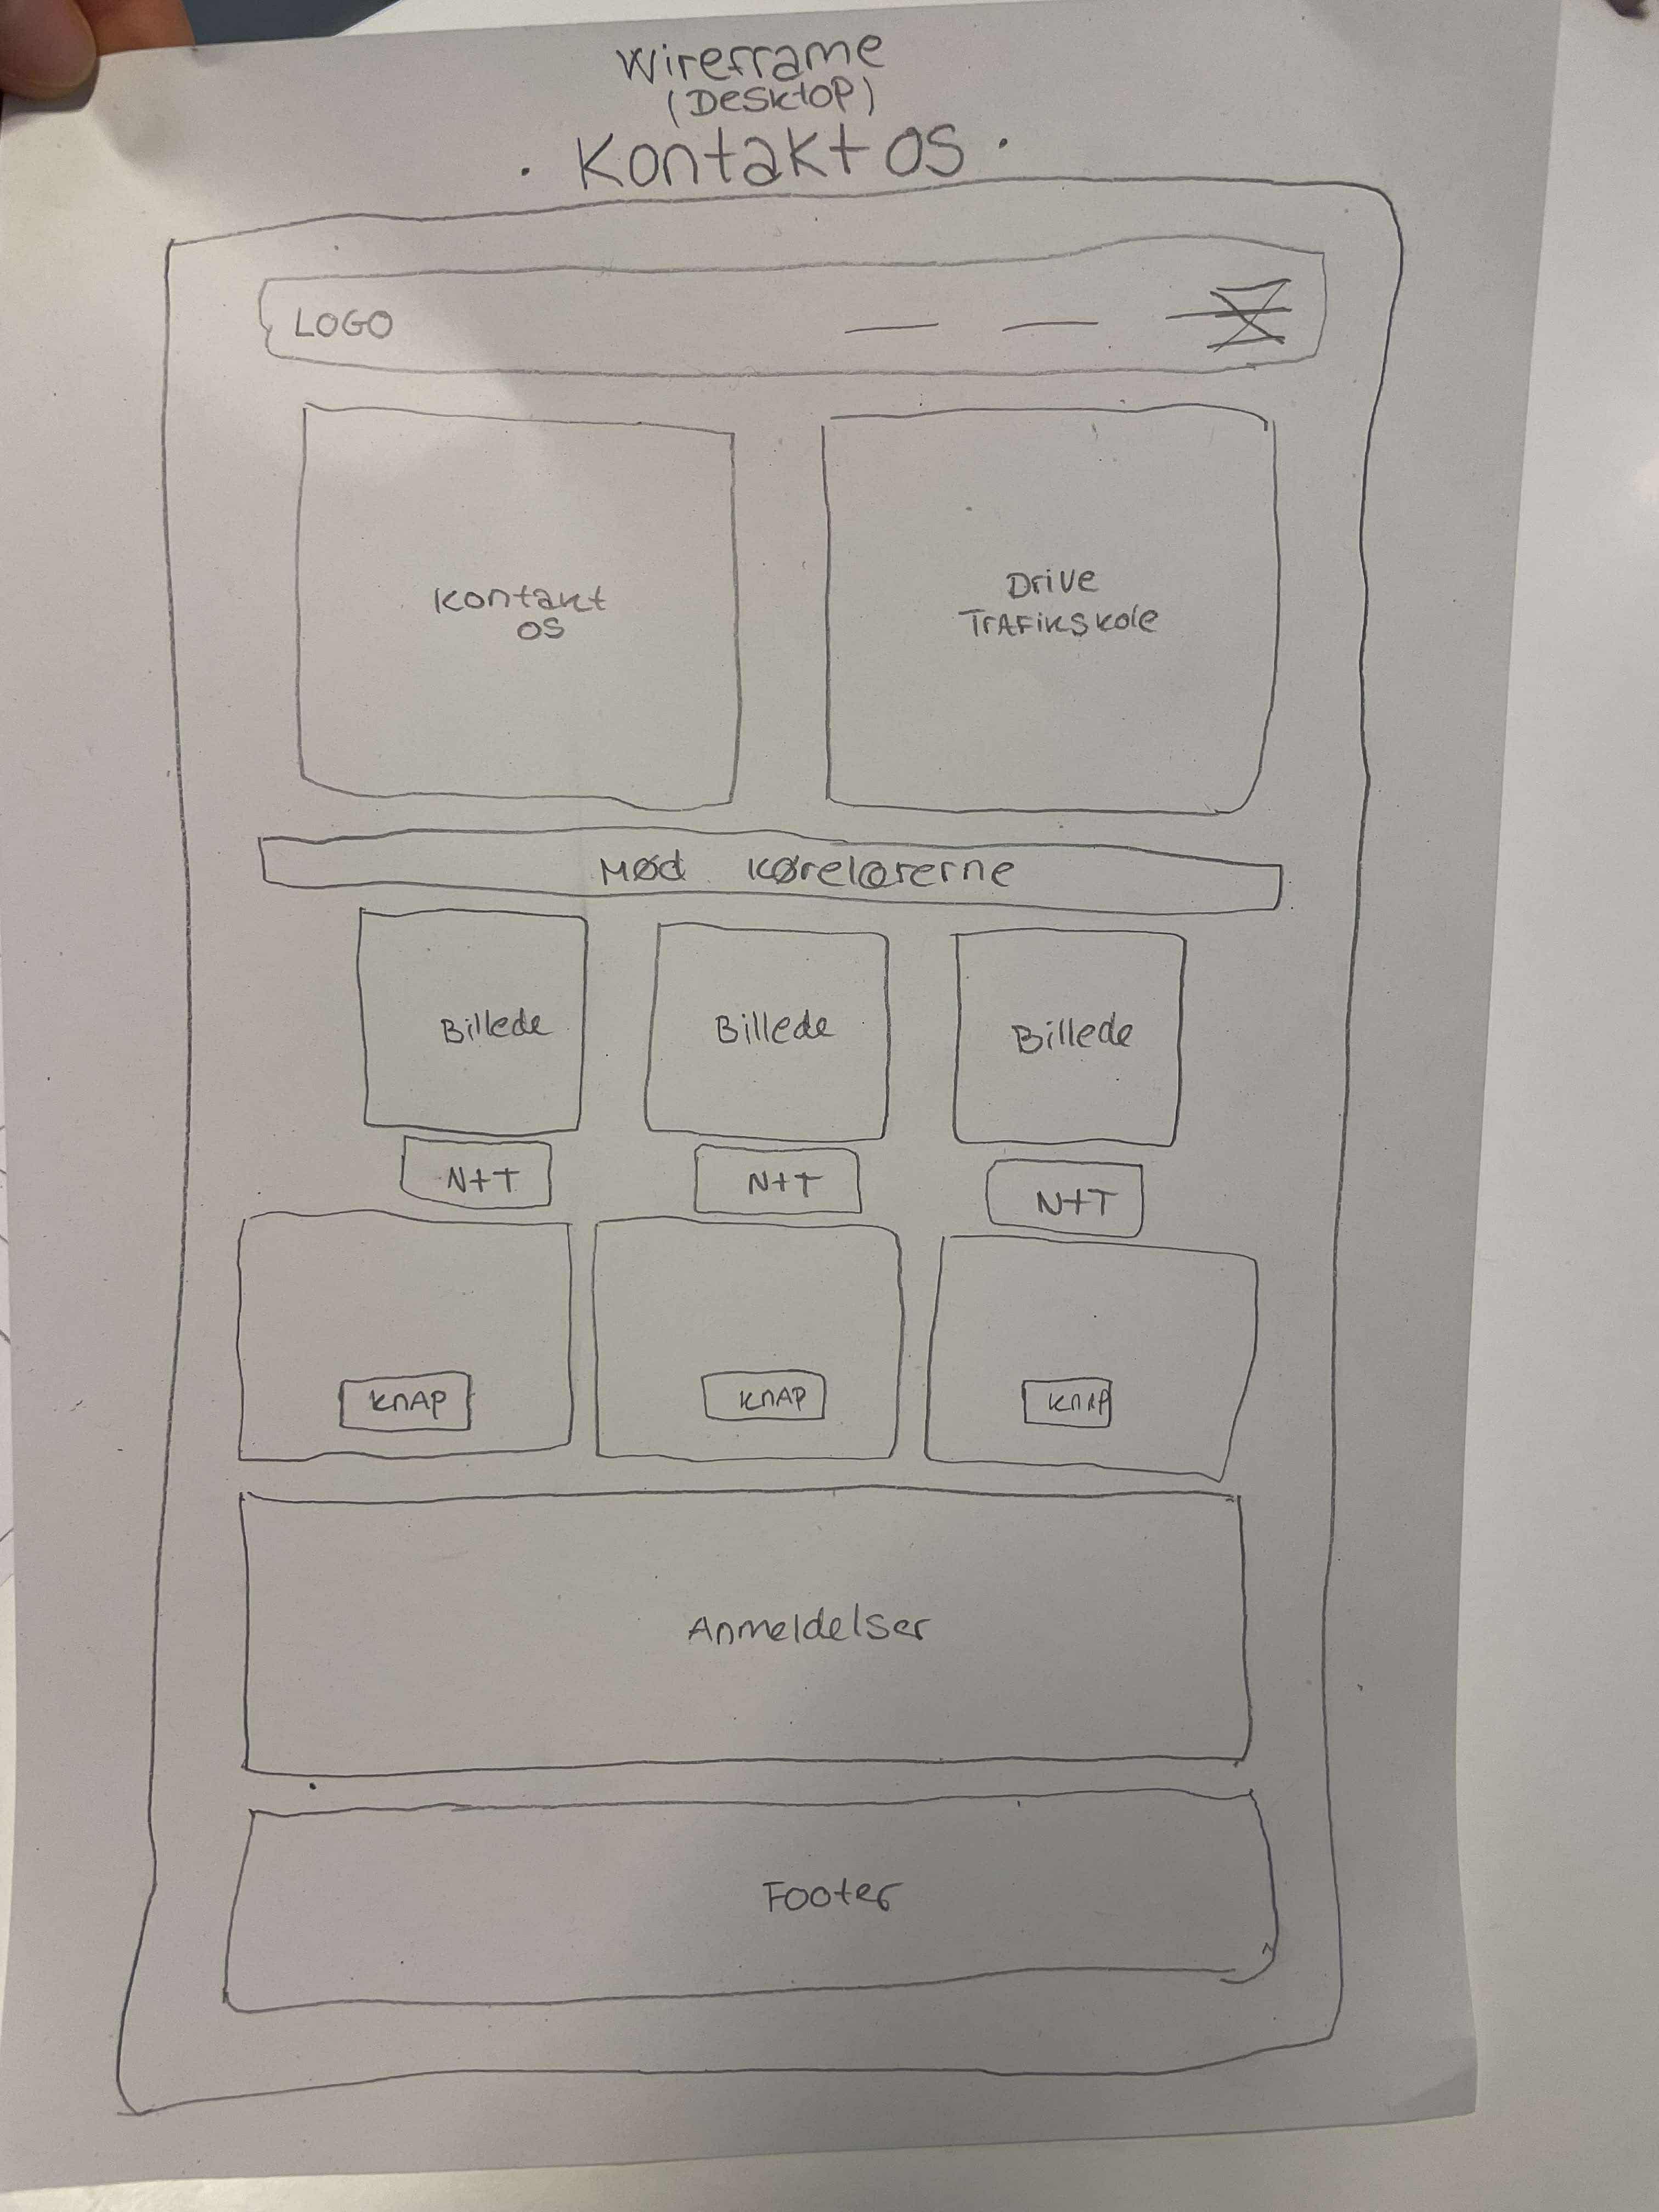 Wireframe
(Desktop)
· Kontakt os ·
LOGO
Kontakt
os
Drive
Trafikskole
Mød kørelærerne
Billede Billede Billede
N+T N+T N+T
KNAP KNAP KNAP
Anmeldelser
Footer